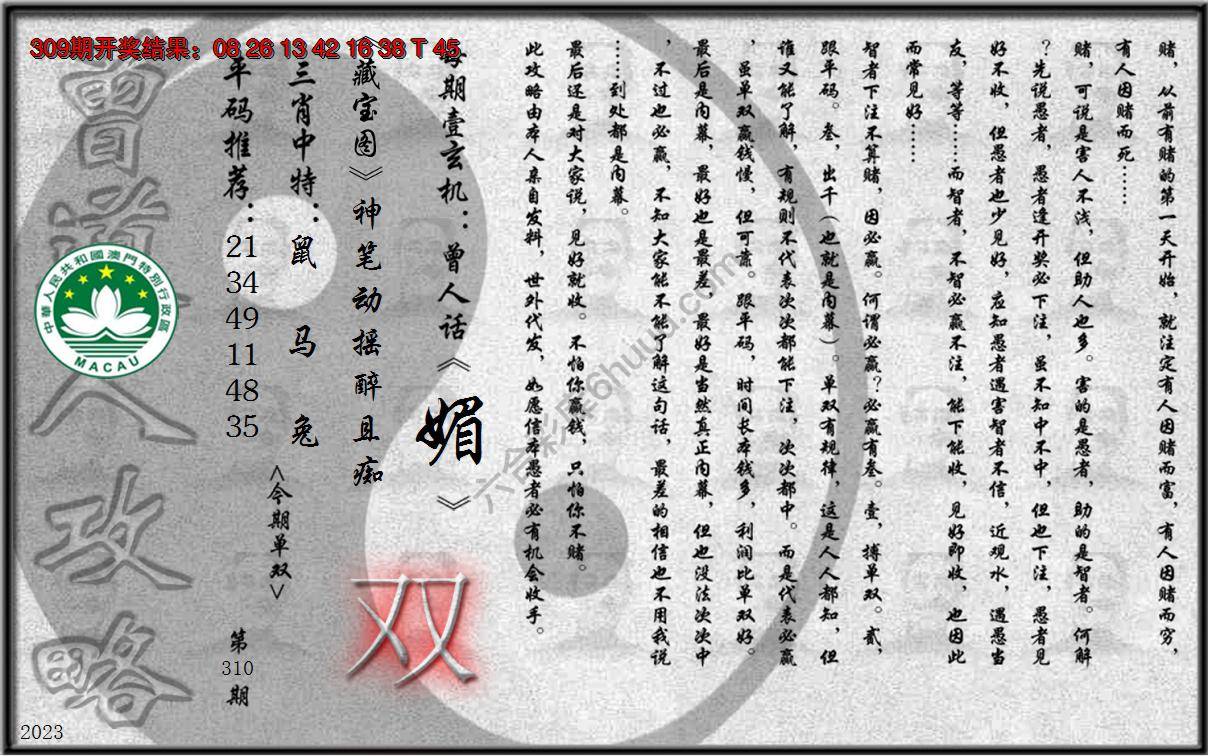 309期开奖结果：08 26 13 42 16 38 T 45
赌，从前有赌的第一天开始，就注定有人因赌而富，有人因赌而穷，
有人因赌而死……
赌，可说是害人不浅，但助人也多。害的是愚者，助的是智者。何解
？先说愚者，愚者逢开奖必下注，虽不知中不中，但也下注，愚者见
好不收，但愚者也少见好，应知愚者遇害智者不信，近观水，遇愚当
友，等等……而智者，不智必赢不注，能下能收，见好即收，也因此
而常见好……
智者下注不算赌，因必赢。何谓必赢？必赢有叁。壹，搏单双。贰，
跟平码。叁，出千（也就是内幕）。单双有规律，这是人人都知，但
谁又能了解，有规则不代表次次都能下注，次次都中。而是代表必赢
，虽单双赢钱慢，但可靠。跟平码，时间长本钱多，利润比单双好。
最后是内幕，最好也是最差，最好是当然真正内幕，但也没法次次中
，不过也必赢，不知大家能不能了解这句话，最差的相信也不用我说
……到处都是内幕。
最后还是对大家说，见好就收。不怕你赢钱，只怕你不赌。
此攻略由本人亲自发料，世外代发，如愿信本愚者必有机会收手。
每期壹玄机：曾人话《媚》
《藏宝图》神笔动摇醉且痴
三肖中特：鼠 马 兔
平码推荐：21 34 49 11 48 35
<今期单双>
双
第310期
曾道人攻略
中華人民共和國澳門特別行政區
MACAU
2023